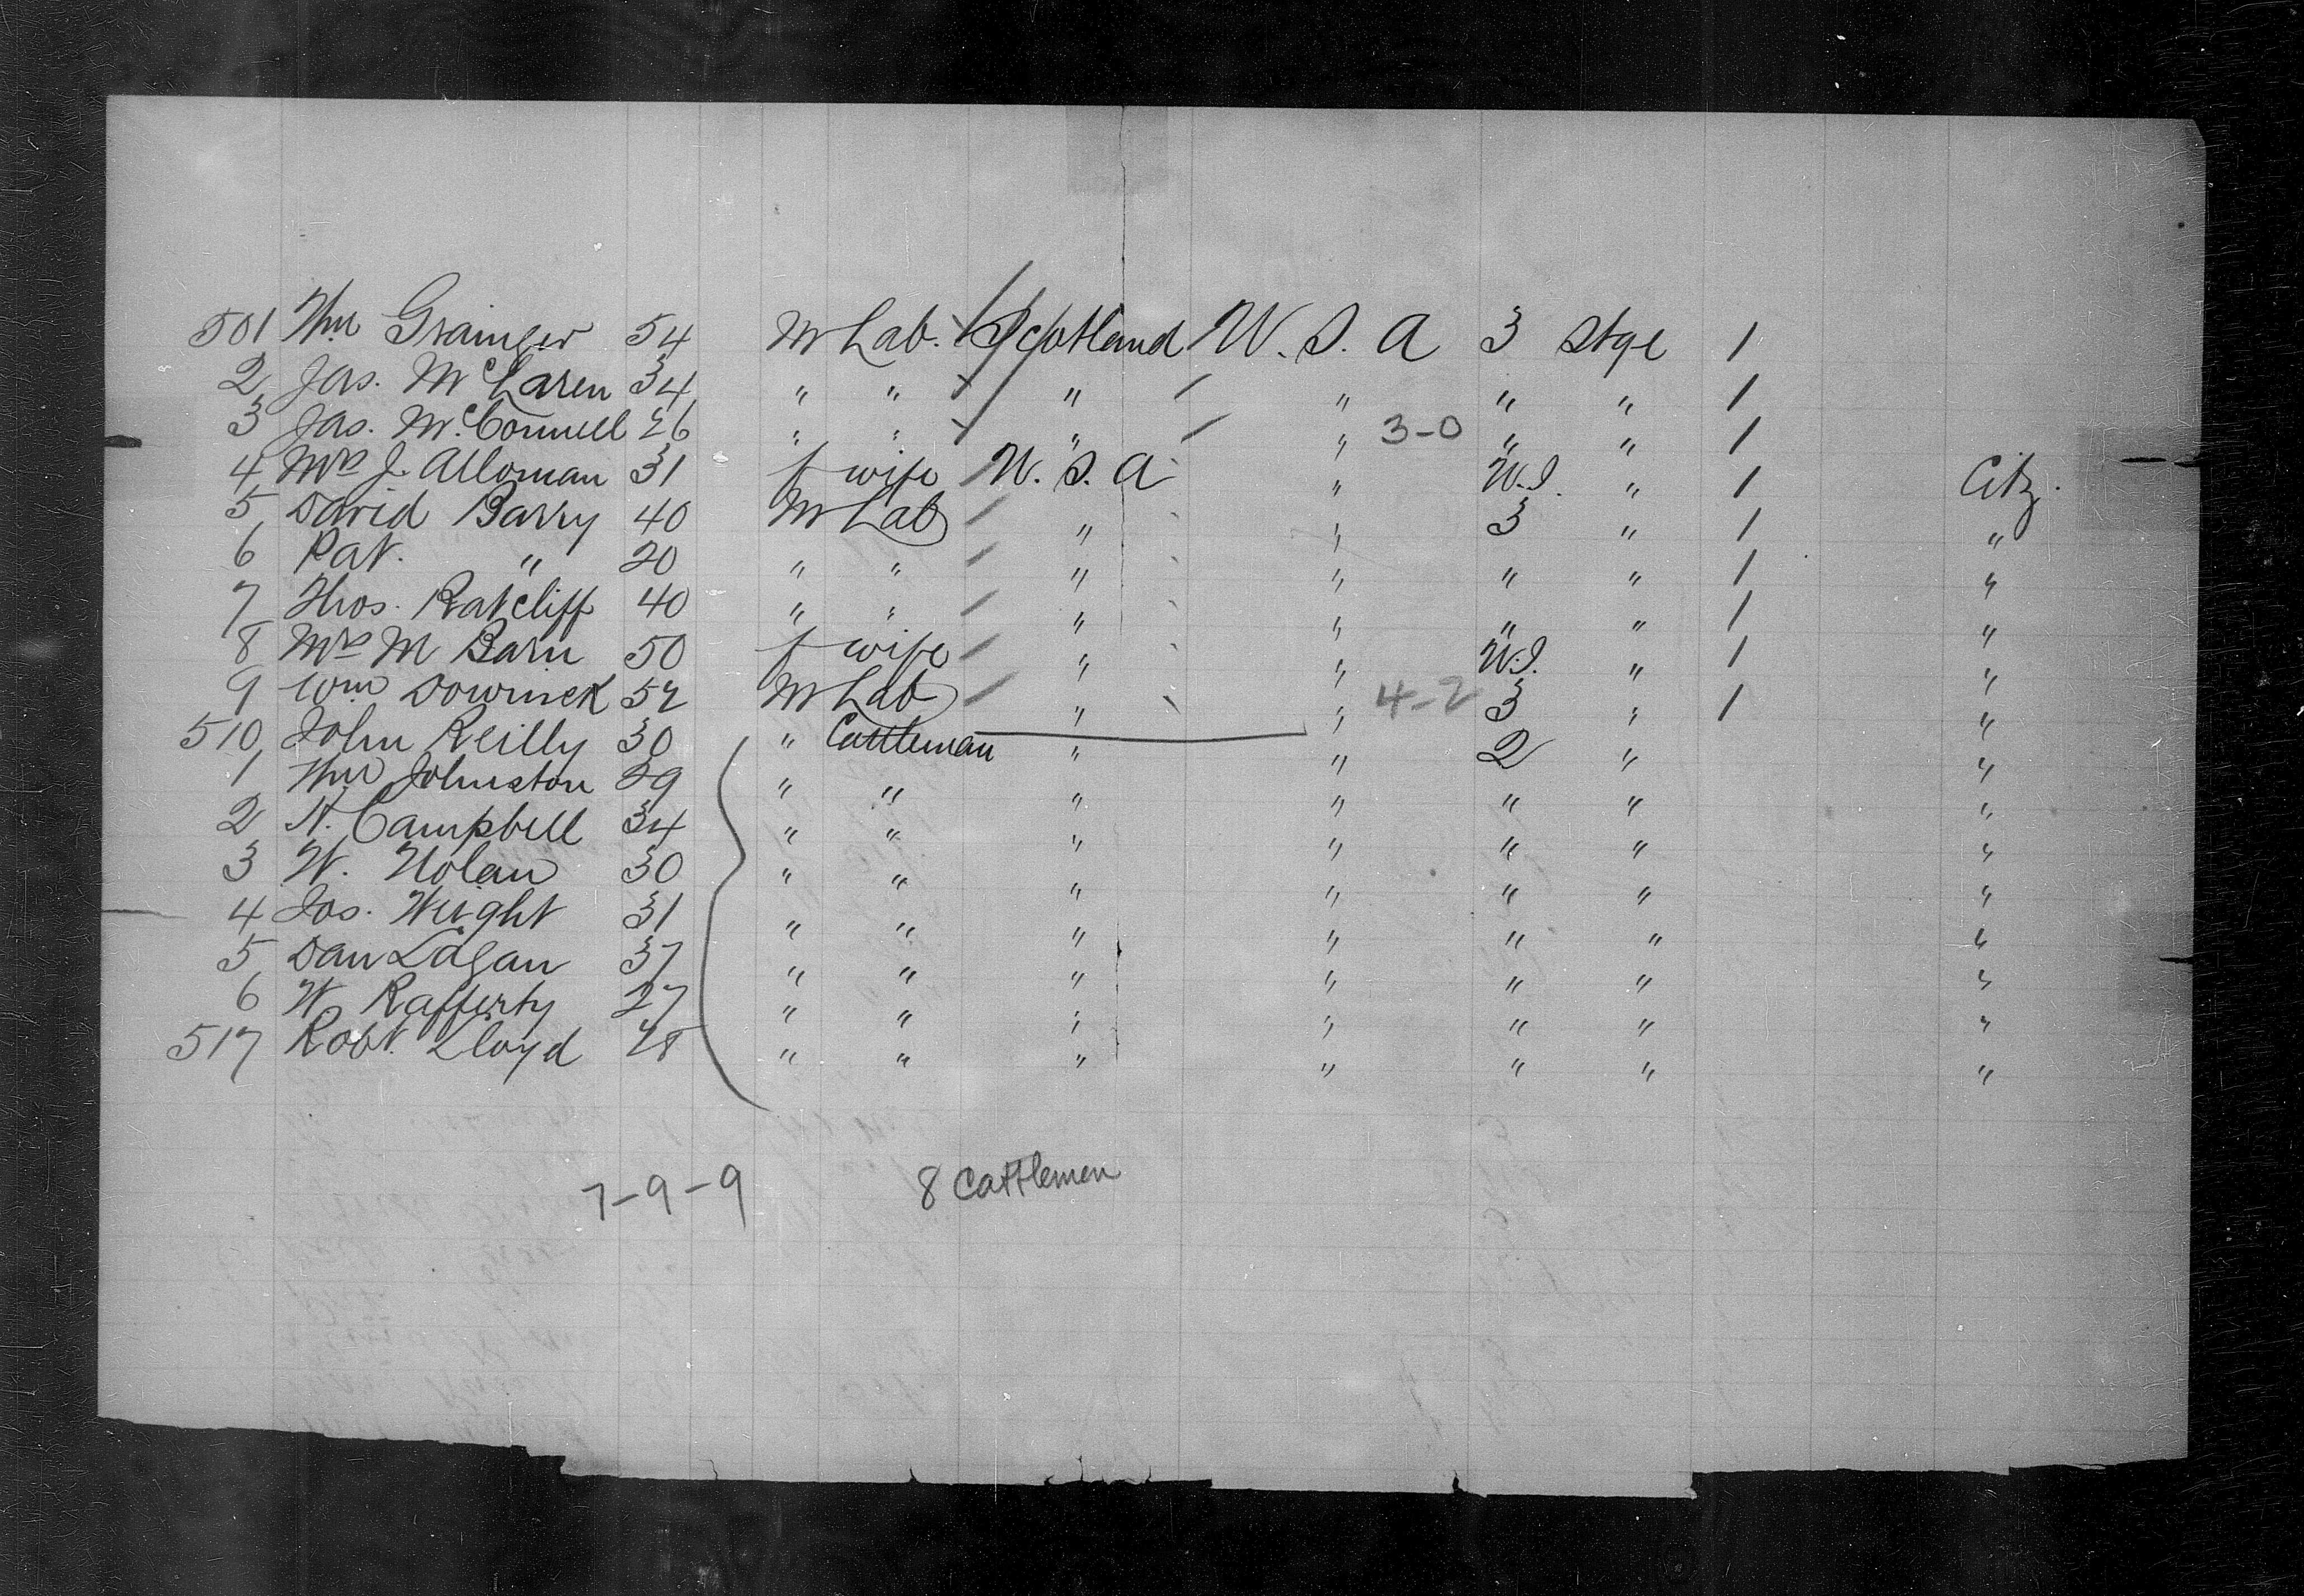 501 Wm Grainger 54 M Lab. Scotland U.S.A 3 Stge 1
2 Jas. McLaren 34 " " " " " " 1
3 Jas. McConnell 26 " " " " 3-0 " " 1
4 Mrs J. Alloman 31 f wife U.S.A " W.I. " 1 Citz.
5 David Barry 40 M Lab " " 3 " 1 "
6 Pat. " 20 " " " " " " 1 "
7 Thos. Ratcliff 40 " " " " " " 1 "
8 Mrs M Barn 50 f wife " " W.I. " 1 "
9 Wm 52 M Lab " " 4-2 3 " 1 "
510 John Reilly 30 " Cattleman " " 2 " "
1 Wm Johnston 29 " " " " " " "
2 N. Campbell 34 " " " " " " "
3 W. Nolan 30 " " " " " " "
4 Jos. Wright 31 " " " " " " "
5 Dan Lagan 37 " " " " " " "
6 W Rafferty 27 " " " " " " "
517 Robt. Lloyd 28 " " " " " " "
7-9-9 8 Cattlemen